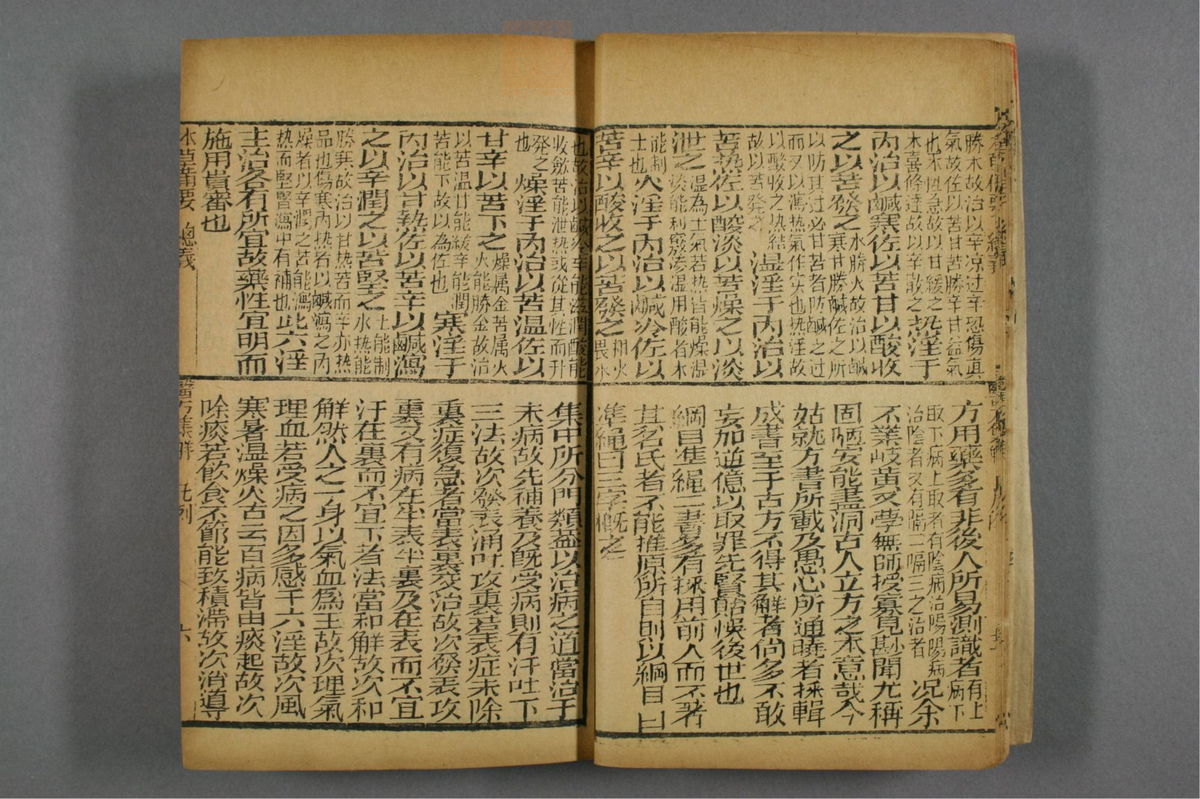 勝木故治以辛凉过辛恐傷其
氣故佐以苦甘苦勝辛甘益氣
也木性急故以甘緩之
木喜條達故以辛散之
热淫于
内治以鹹寒佐以苦甘以酸收
之以苦發之
水勝火故治以鹹
寒甘勝鹹佐之所
以防其过必甘苦者防鹹之过
而又以瀉热氣作实也热淫故
以酸收之热結
故以苦發之
湿淫于内治以
苦热佐以酸淡以苦燥之以淡
泄之
湿為土氣若热皆能燥湿
淡能利竅渗湿用酸者木
能制
土也
火淫于内治以鹹冷佐以
苦辛以酸收之以苦發之
相火
畏水
也故治以鹹冷辛能滋潤酸能
收斂苦能泄热或從其性而升
發之
也
燥淫于内治以苦温佐以
甘辛以苦下之
燥属金苦属火
火能勝金故治
以苦温甘能緩辛能潤
苦能下故以為佐也
寒淫于
内治以甘熱佐以苦辛以鹹瀉
之以辛潤之以苦堅之
土能制
水热能
勝寒故治以甘热苦而辛亦热
品也傷寒内热者以鹹瀉之内
燥者以辛潤之苦能瀉
热而堅腎瀉中有補也
此六淫
主治各有所宜故藥性宜明而
施用貴審也
本草備要 總義
方用藥多有非後人所易測識者
有上病
取下病上取者有陰病治陽陽病
治陰者又有隔二隔三之治者
况余
不業岐黄又學無師授寡見尠聞尤稱
固陋安能盡洞古人立方之本意哉今
姑就方書所載及愚心所通曉者採輯
成書至于古方不得其解者尚多不敢
妄加逆億以取罪先賢貽悞後世也
綱目準繩二書多有採用前人而不著
其名氏者不能推原所自則以綱目曰
準繩曰三字概之
集中所分門類葢以治病之道當治于
未病故先補養及既受病則有汗吐下
三法故次發表涌吐攻裏若表症未除
裏症復急者當表裏交治故次發表攻
裏又有病在半表半裏及在表而不宜
汗在裏而不宜下者法當和解故次和
解然人之一身以氣血為主故次理氣
理血若受病之因多感于六淫故次風
寒暑温燥火古云百病皆由痰起故次
除痰若飲食不節能致積滯故次消導
醫方集解 凡例 六